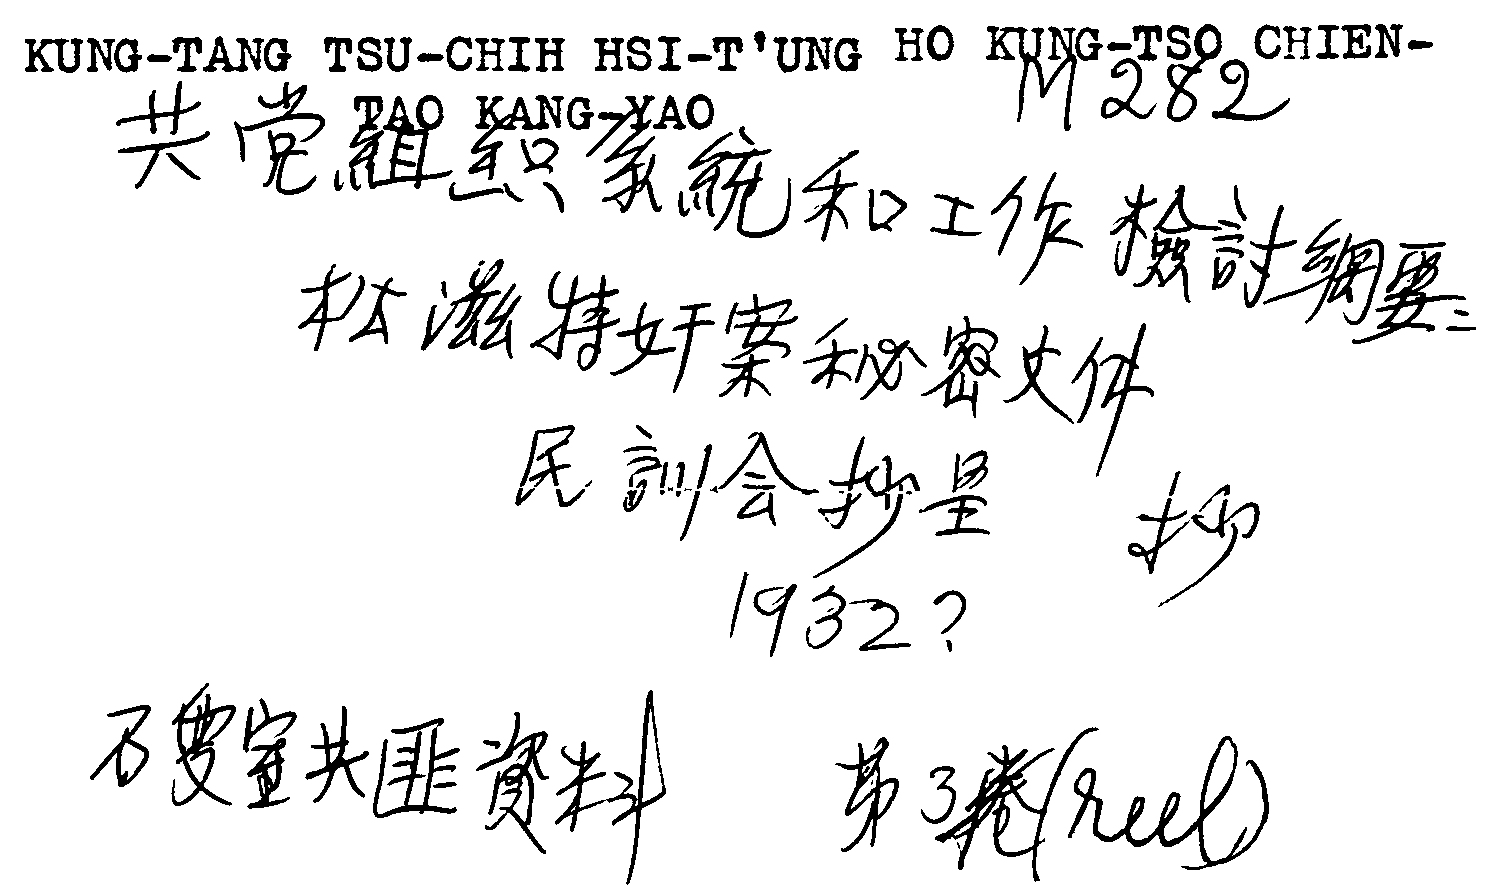 KUNG-TANG TSU-CHIH HSI-T'UNG HO KUNG-TSO CHIEN-
TAO KANG-YAO
M282
共党組织系統和工作檢討綱要
松滋特奸案秘密文件
民訓会抄呈
抄
1932?
石叟室共匪資料 第3卷(reel)